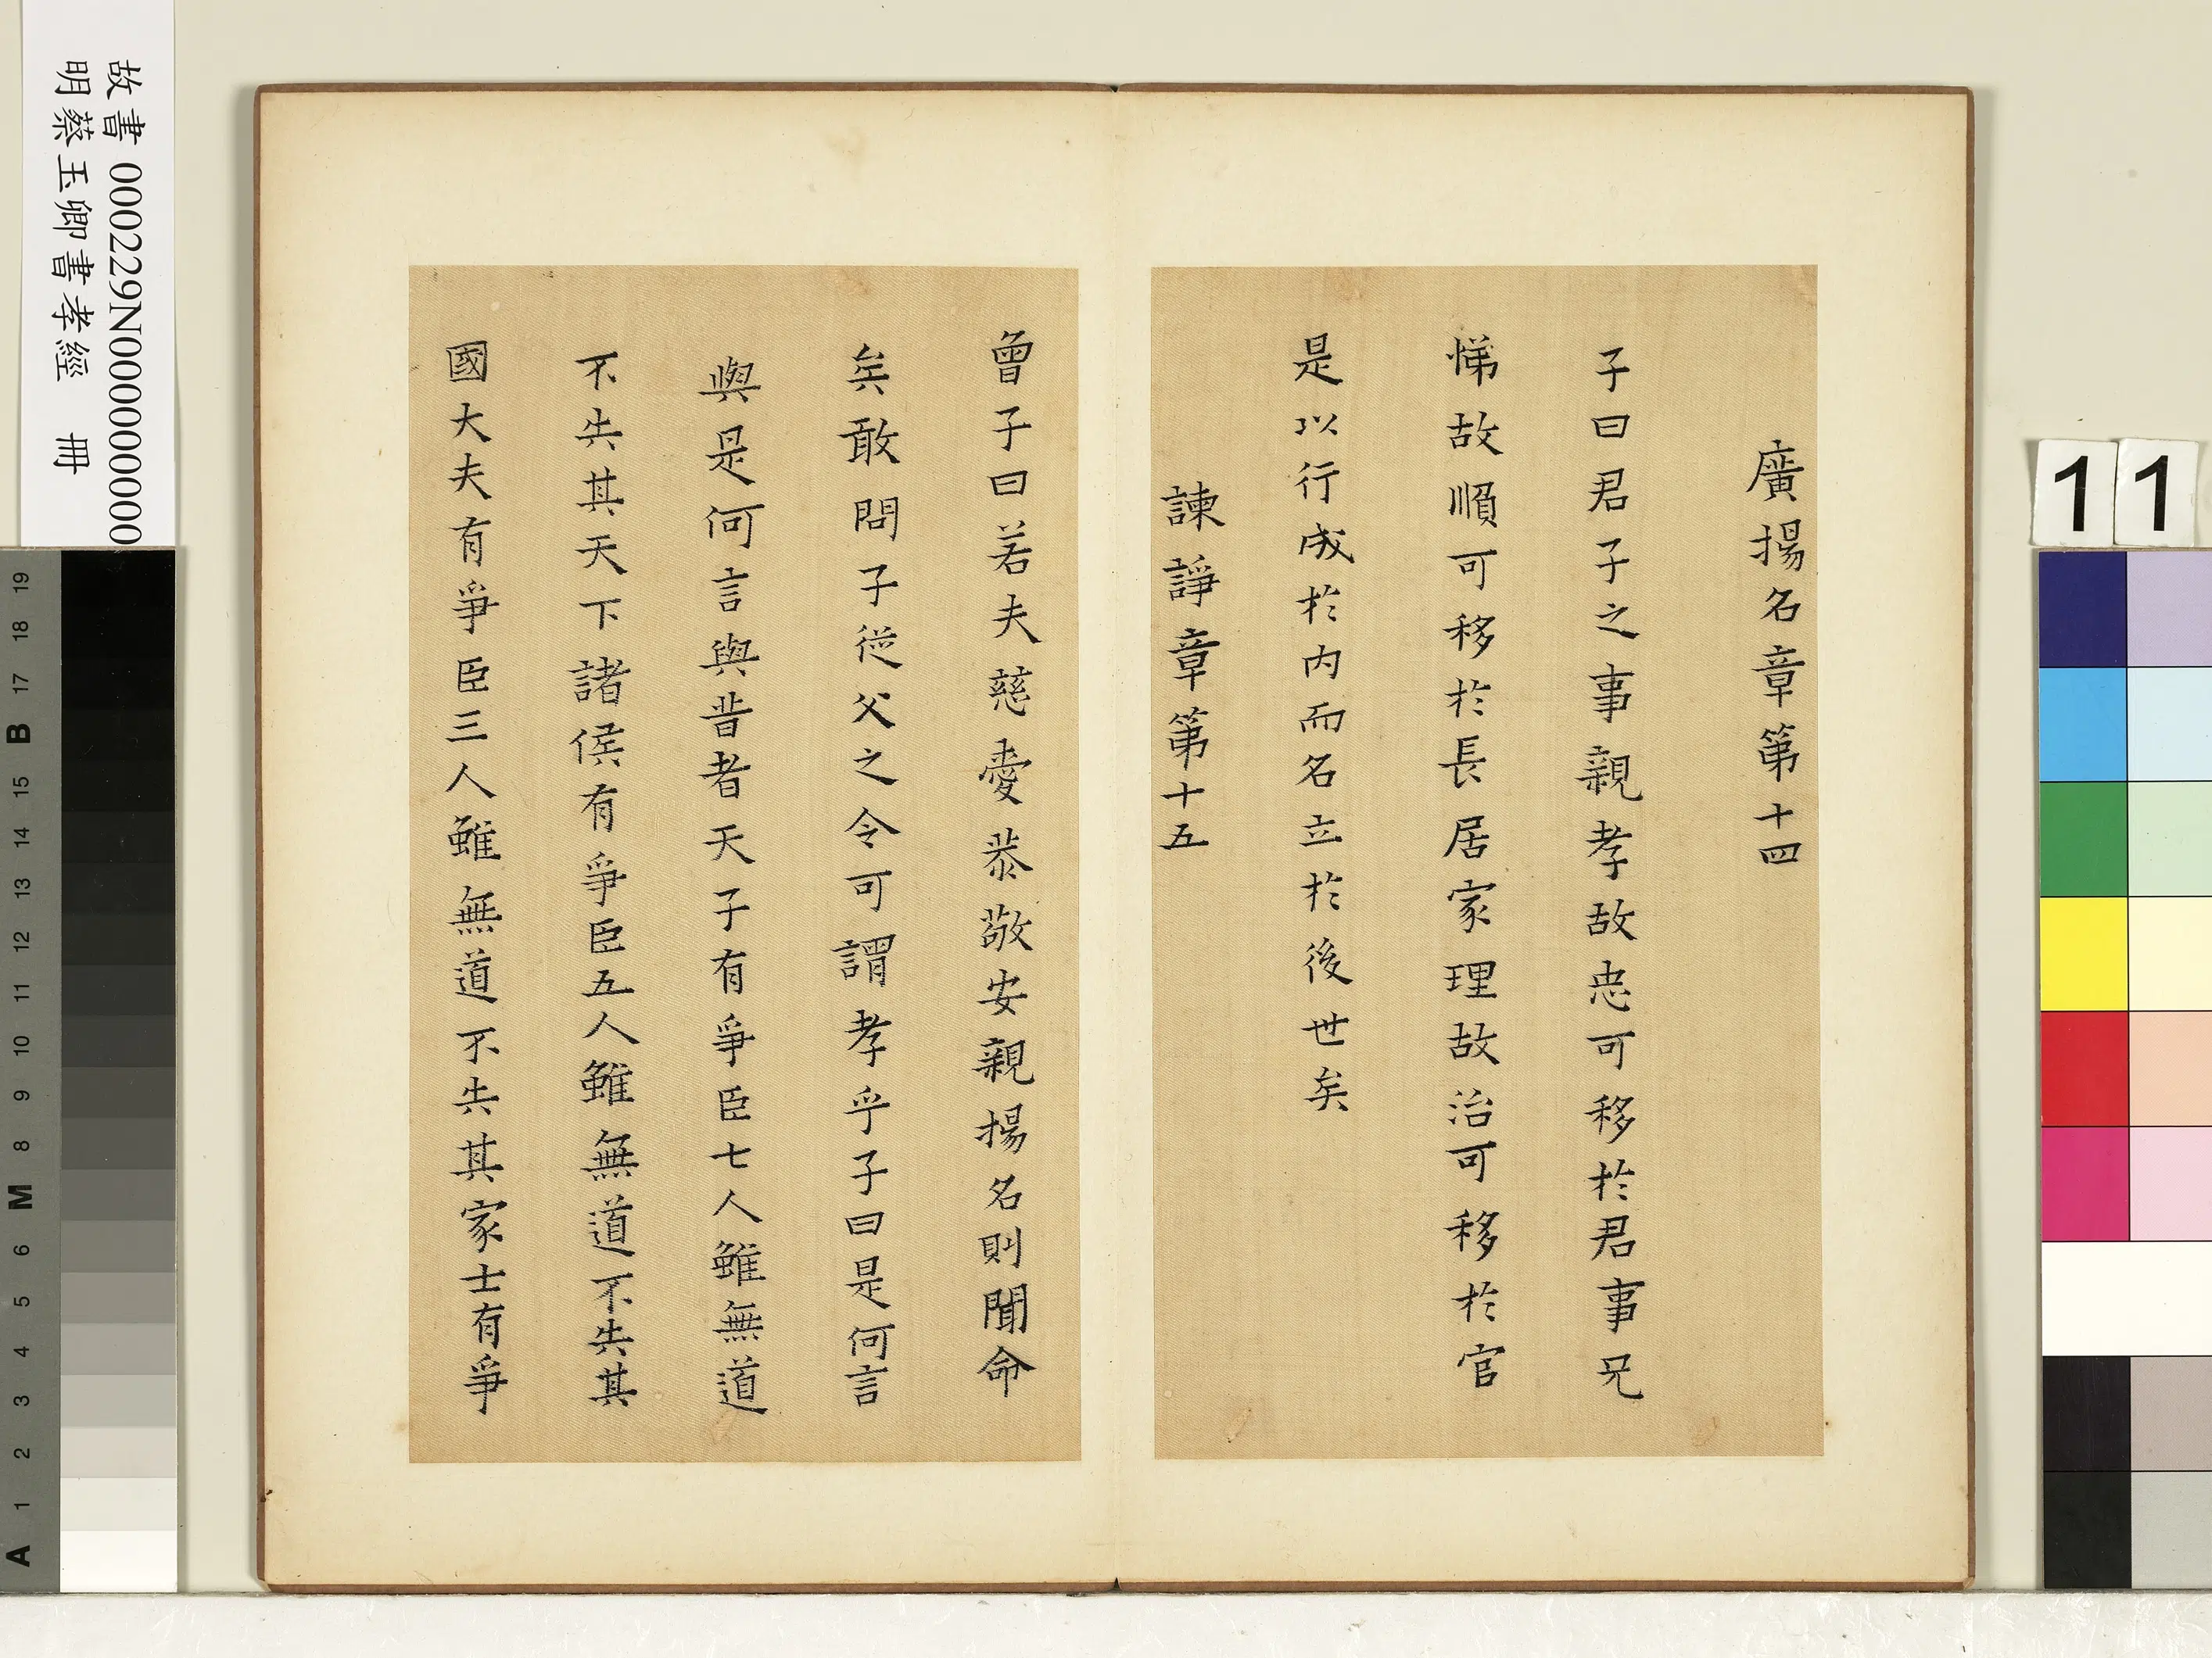 廣揚名章第十四
子曰君子之事親孝故忠可移於君事兄
悌故順可移於長居家理故治可移於官
是以行成於內而名立於後世矣
諫諍章第十五
曾子曰若夫慈愛恭敬安親揚名則聞命
矣敢問子從父之令可謂孝乎子曰是何言
與是何言與昔者天子有爭臣七人雖無道
不失其天下諸侯有爭臣五人雖無道不失其
國大夫有爭臣三人雖無道不失其家士有爭
故書 000229N000000000
明蔡玉卿書孝經 冊
11
A 1 2 3 4 5 6 M 8 9 10 11 12 13 14 15 B 17 18 19